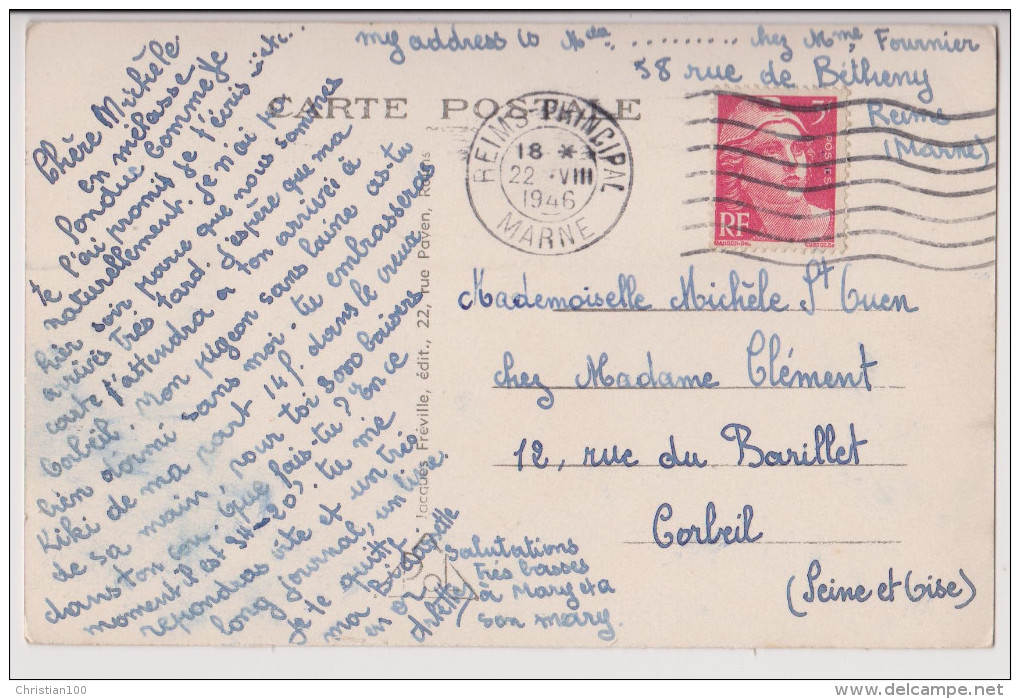 my address is Mde .......... chez Mme Fournier
58 rue de Bétheny
Reims
(Marne)
CARTE POSTALE
REIMS-PRINCIPAL
18 **
22 -VIII
1946
MARNE
3F
POSTES
RF
GANDON-DEL.
Chère Michèle
en mélasse
fondue Comme je
te l'ai promis je t'écris
naturellement. Je n'ai pas
hier soir parce que nous sommes
arrivés très tard. J'espère que ma
carte t'attendra a ton arrivée à
Corbeil. Mon pigeon sans laine as-tu
bien dormi sans moi. tu embrasseras
Kiki de ma part 14 f. dans le creux
de sa main, pour toi 3000 baisers
dans ton cou, que fais-tu? En ce
moment il est 9H-20, tu me
répondras vite et un très
long journal, un livre.
Je te quitte
ma
en or
Arlette
Salutations
très basses
à Mary et a
son mary.
Jacques Fréville, édit., 22, rue Paven, Reims
Mademoiselle Michèle St Guen
chez Madame Clément
12, rue du Barillet
Corbeil
(Seine et Oise)
Christian100
www.delcampe.net